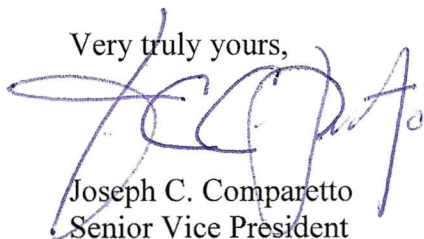 Very truly yours,
Joseph C. Comparetto
Senior Vice President